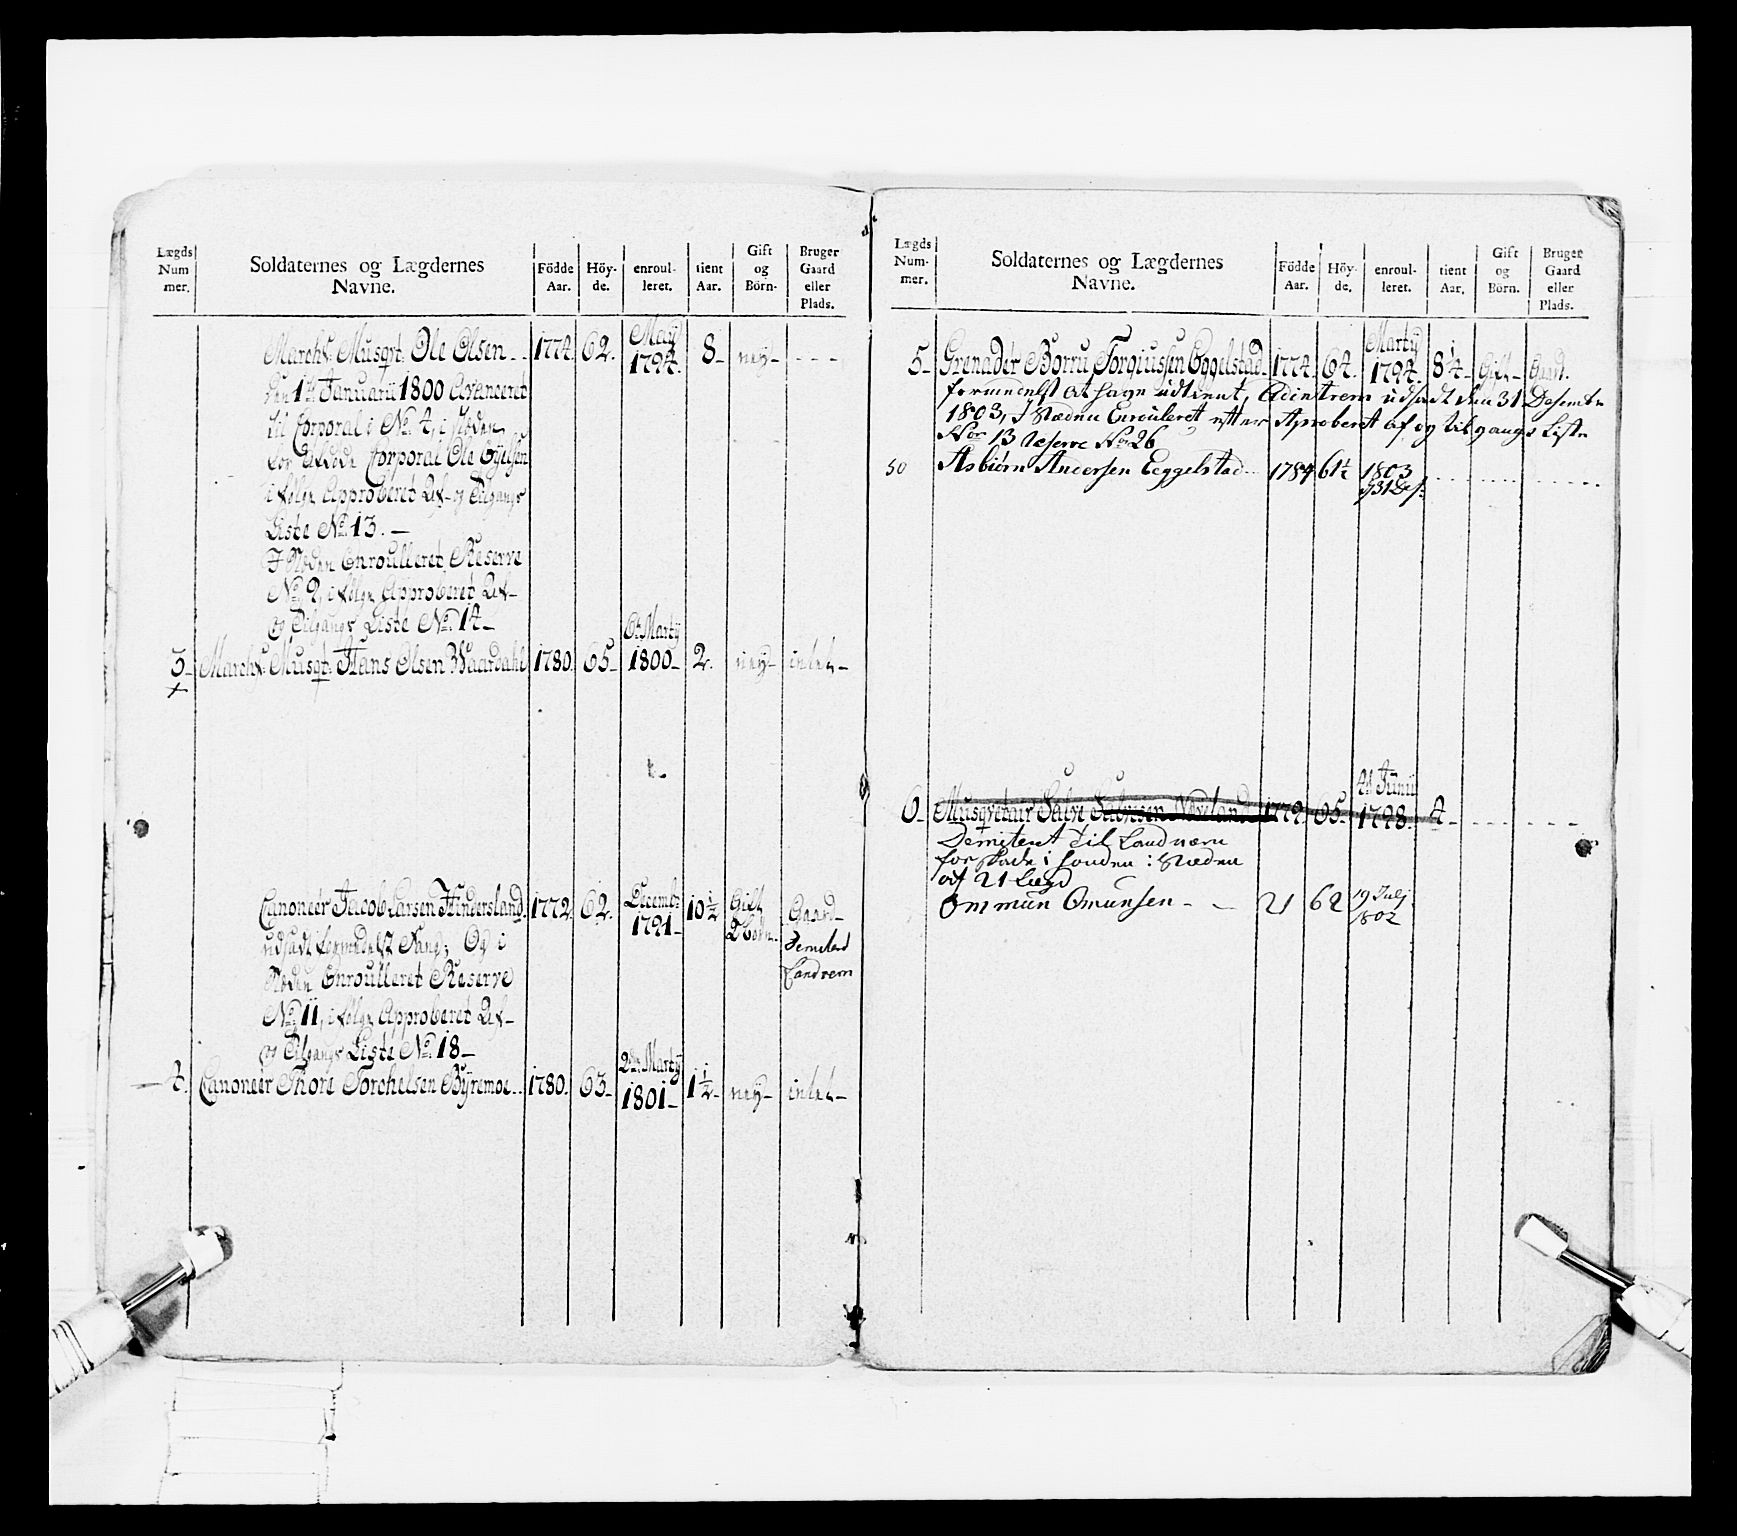 Lægds Num mer. | Soldaternes og Lægdernes Navne. | Födde Aar. | Höy- de. | enroul- leret. | tient Aar. | Gift og Börn. | Bruger Gaard eller Plads.
March: Musqt: Ole Olsen - - 1774. 62. Maij 1794. 8 - ney - - - -
den 1te Januarii 1800 Avanceret
til Corporal i No. 4, i Stæden
for Afdöde Corporal Ole Eyelsen
i fölge Approberet Af- og Tilgangs
Liste No. 13. -
I Stæden Enroulleret Reserve
No. 9, i fölge Approberet Af-
og Tilgangs Liste No. 14 -
3 - March: Musqt: Hans Olsen Waardahl 1780. 65 - 6te Martij 1800 - 2. ney - intet -
x
Canoneer Jacob Larsen Hindersland. 1772. 62. Decembr 1791 - 10 1/2 Gift 2 börn. Gaard -
udsadt formedelst Svag; Og i Demiterd
Stæden Enroulleret Reserve Landvern
No. 11, i fölge Approberet Af-
og Tilgangs Liste No. 18 -
4. Canoneer Thore Torchelsen Byremoe - - 1780. 63 - 2den Martij 1801 - 1 1/2 - ney - intet -
Lægds Num- mer. | Soldaternes og Lægdernes Navne. | Födde Aar. | Höy- de. | enroul- leret. | tient Aar. | Gift og Börn. | Bruger Gaard eller Plads.
5 - Grenadér Borru Torgiussen Eggelstad - 1774. 64. Martij 1794 8 1/4 - Gift - Gaard.
formedelst at have udtient, udsadt den 31 Desembr
1803, I Stæden Enrouleret efter Aproberet af og tilgangs Liste
Nor 13 Reserve Nor 26
50 Asbiørn Andersen Eeggelstad - - 1784 61 1/2 1803 d 31 Des:
6 - Musqvetair Salve Salvesen Növeland 1772. 65 - 4de Junii 1798 - 4 -
Demiteret til Landværn
for skade i : Stæden
af 21 Lægd
Ommun Omunsen - - 21 62 19 Julj 1802